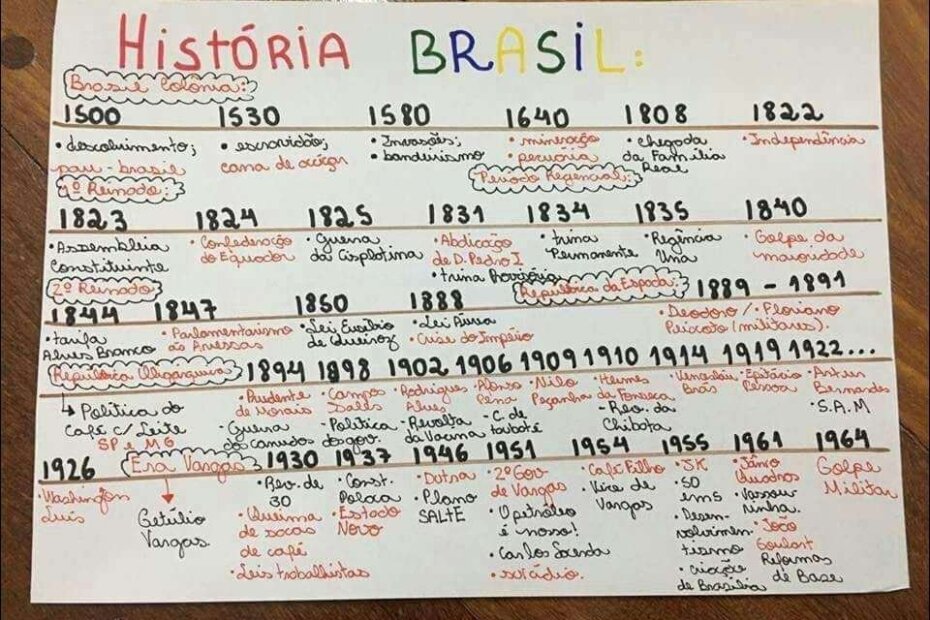 História BRASIL:
Brasil Colônia:
1500 1530 1580 1640 1808 1822
• descobrimento; • escravidão; • Invasões; • mineração • chegada • Independência
pau-brasil cana de açúcar • bandeirismo • pecuária da Família
Real
1º Reinado: Período Regencial:
1823 1824 1825 1831 1834 1835 1840
• Assembleia • Confederação • Guerra • Abdicação • trina • Regência • Golpe da
Constituinte do Equador da Cisplatina de D. Pedro I Permanente Una maioridade
• trina Provisória
2º Reinado República da Espada:
1844 1847 1850 1888 1889 - 1891
• tarifa • Parlamentarismo • Lei Eusébio • Lei Áurea • Deodoro / • Floriano
Alves Branco às Avessas de Queiroz • Crise do Império Peixoto (militares).
República Oligárquica 1894 1898 1902 1906 1909 1910 1914 1919 1922...
• Prudente • Campos • Rodrigues • Afonso • Nilo • Hermes • Venceslau • Epitácio • Artur
de Morais Salles Alves Pena Peçanha da Fonseca Brás Pessoa Bernardes
Política do • Guerra • Política • Revolta • C. de • Rev. da • S.A.M
Café c/ Leite de canudos dos gov. da Vacina taubaté Chibata
SP e MG
1926 Era Vargas 1930 1937 1946 1951 1954 1955 1961 1964
• Washington • Rev. de • Const. • Dutra • 2º Gov. • Café Filho • JK • Jânio Golpe
Luís 30 Polaca • Plano de Vargas • Vice de • 50 Quadros Militar
Getúlio • Queima • Estado SALTE • O petróleo Vargas em 5 • Vassou-
Vargas de sacas Novo é nosso! • Desen- rinha.
de café • Carlos Lacerda volvimen- • João
• Leis trabalhistas • suicídio. tismo Goulart
• criação Reformas
de Brasília de Base